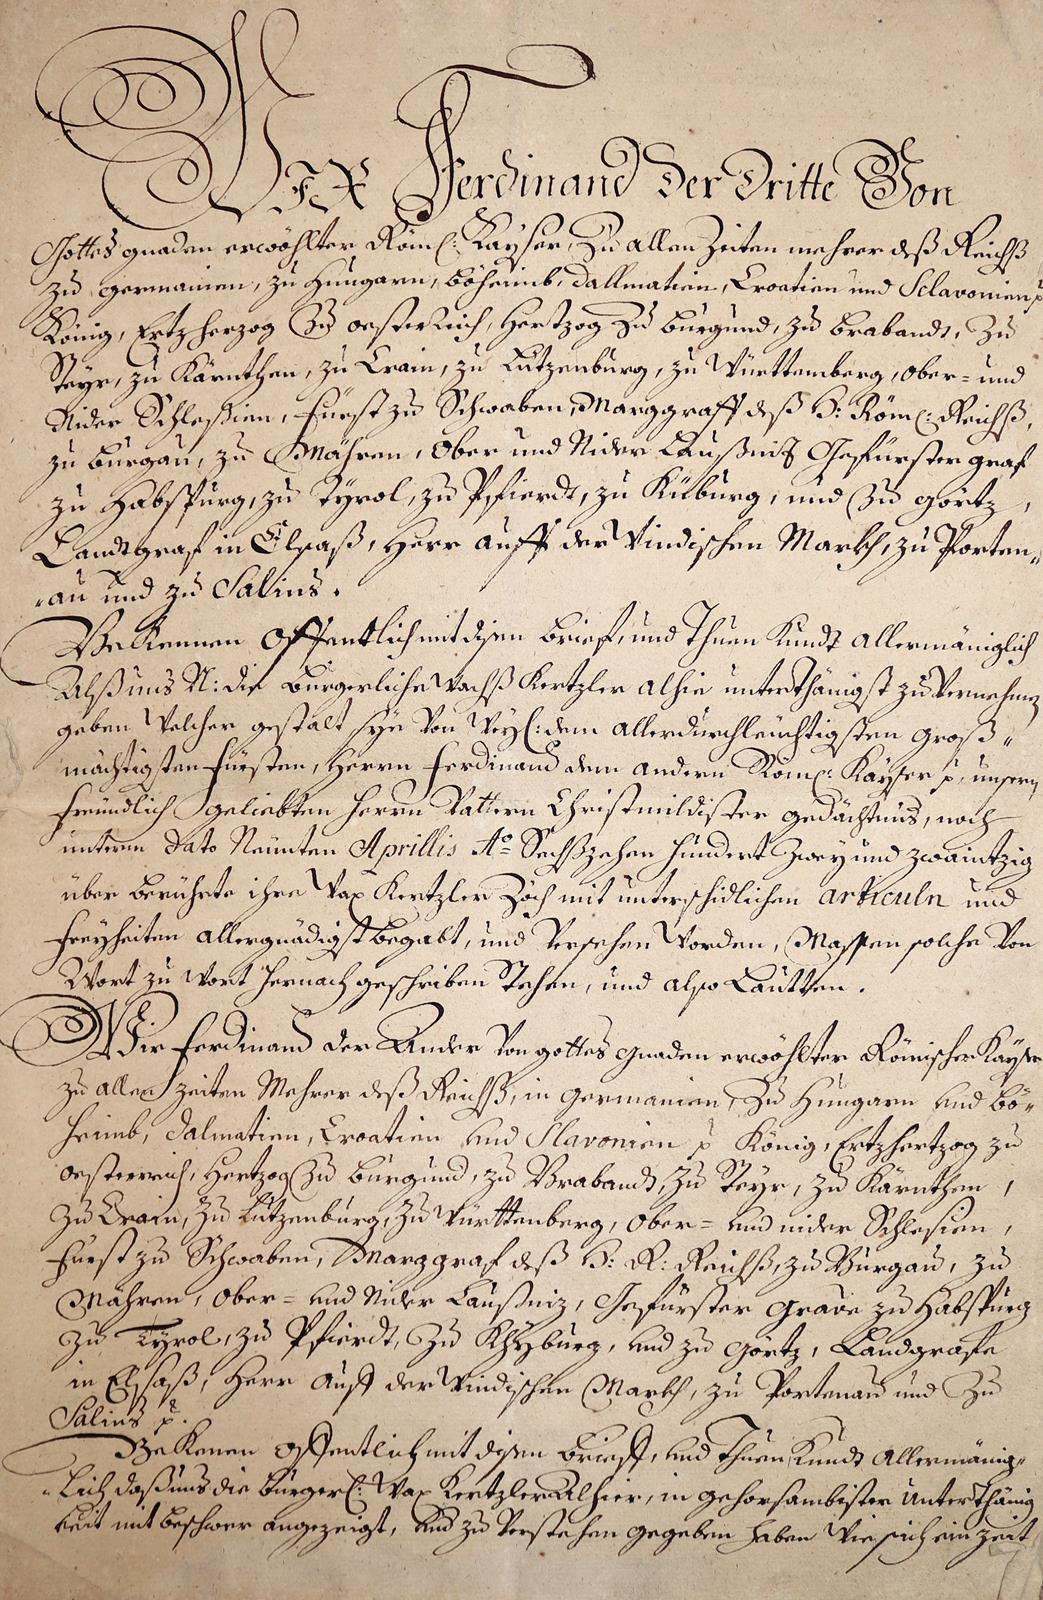 Wir Ferdinand der Dritte Von
Gottes gnaden erwöhlter Röm: Kayser, Zu allen Zeiten mehrer deß Reichß
zu germanien, zu Hungarn, böheimb, dallmatien, Croatien und Sclavonien p
König, Ertzherzog Zu oesterreich, Hertzog Zu burgund, zu brabandt, Zu
Steyr, zu Kärnthen, zu Crain, zu Lützenburg, zu Württemberg, ober- und
Nider Schlesien, fürst zu Schwaben, Marggraff deß H: Röm: Reichß,
zu burgau, zu Mähren, ober und Nider Laußniz Gefürster graf
zu Habspurg, zu Tyrol, zu Pfierdt, zu Küburg, und Zu görtz,
Landtgraf in Elsaß, Herr auff der Windischen Markh, zu Porten„
„au und zu Salins.
Bekennen offentlich mit disen brieff, und Thuen Kundt allermäniglich
Alß uns N: die burgerliche wachß Kertzler alhie unterthänigst zu Vernehmen
geben Welcher gestalt sye Von Weyl: dem allerdurchleuchtigsten groß„
mächtigsten fürsten, Herrn ferdinand dem andern Röm: Kayser p, unsern
freundlich geliebten Herrn Vattern Christmildister gedächtnus, noch
unterm dato Neunten Aprillis Ao Sechßzehen hundert Zwey und zwaintzig
über berührte ihre Wax Kertzler Zöch mit unterschidlichen articuln und
freyheiten allergnädigst begabt, und Versehen Worden, Massen solche Von
Wort zu Wort hernach geschriben Stehen, und also Lautten.
Wir ferdinand der Ander Von gottes gnaden erwöhlter Römischer Kayser
zu allen zeiten Mehrer deß Reichß, in germanien, Zu Hungarn und bö„
heimb, dalmatien, Croatien und Slavonien p König, Ertzhertzog zu
oesterreich, Hertzog Zu burgund, zu Brabandt, zu Steyr, zu Kärnthen,
Zu Crain, Zu Lützenburg, Zu Württenberg, ober- und nider Schlesien,
fürst zu Schwaben, Marggraf deß H: R: Reichß, zu Burgau, zu
Mähren, ober- und Nider Laußniz, Gefürster grave zu Habspurg
Zu Tyrol, zu Pfierdt, Zu Khyburg, und zu görtz, Landgrafe
in Elsaß, Herr auff der Windischen Markh, zu Portenau und Zu
Salins p.
Bekenen offentlich mit disen brieff, und Thuen Kundt allermänig„
„lich daß uns die burgerl: Wax Kertzler alhier, in gehorsambister unterthänig
keit mit beschwer angezeigt, und zu Verstehen gegeben haben Wie sich ein zeit